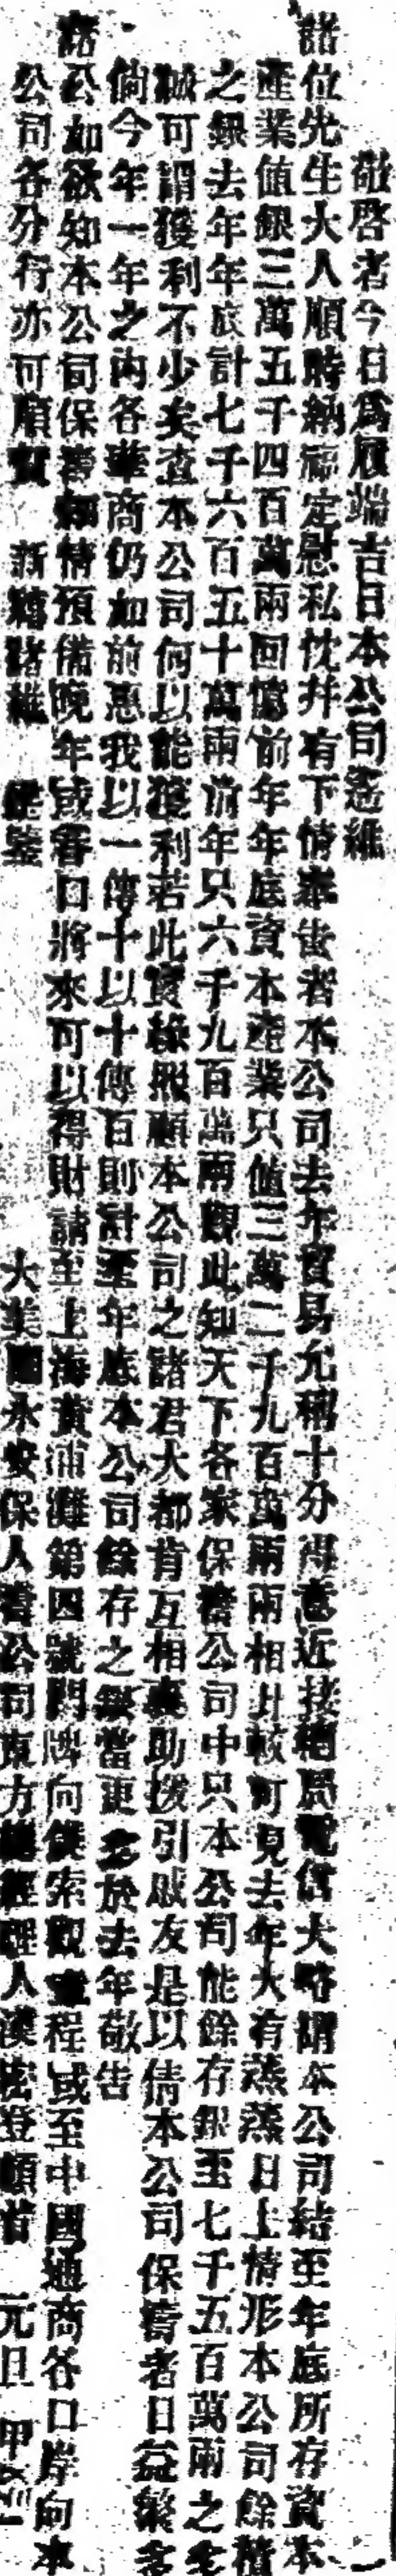 敬啓者今日爲履端吉日本公司恭維
諸位先生大人順時納福定慰私忱幷有下情奉告者本公司去年貿易允稱十分得意近接總局電信大略謂本公司結至年底所存資本
產業値銀三萬五千四百萬兩回憶前年年底資本產業只値三萬二千九百萬兩兩相比較可見去年大有蒸蒸日上情形本公司餘積
之銀去年年底計七千六百五十萬兩前年只六千九百萬兩觀此知天下各家保險公司中只本公司能餘存銀至七千五百萬兩之多
誠可謂獲利不少矣查本公司何以能獲利若此實緣照顧本公司之諸君大都肯互相襄助援引戚友是以倩本公司保壽者日益繁多
倘今年一年之內各華商仍如前惠我以一傳十以十傳百則計至年底本公司餘存之銀當更多於去年敬告
諸公如欲知本公司保壽細情預備晚年或眷口將來可以得財請至上海黃浦灘第四號門牌向僕索觀章程或至中國通商各口岸向本
公司各分行亦可順賀 新禧諸維 偉鑒 大美國永安保人壽公司東方總經理人漢密登頓首 元旦